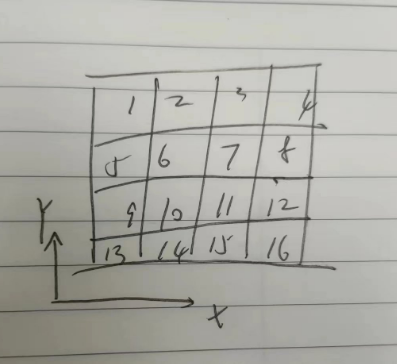 1 2 3 4
5 6 7 8
9 10 11 12
13 14 15 16
Y
X